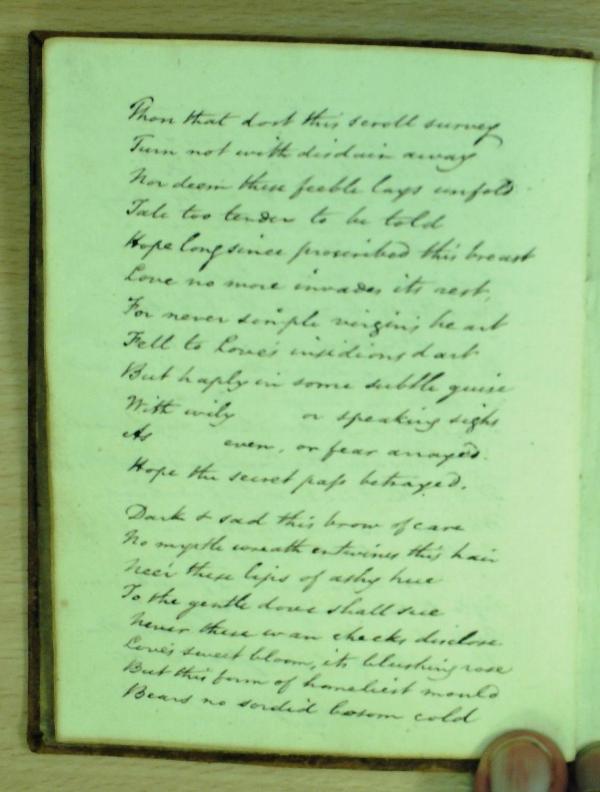 Thou that dost this scroll survey
Turn not with disdain away
Nor deem these feeble lays unfold
Tale too tender to be told
Hope long since proscribed this breast
Love no more invades its rest,
For never simple virgin's heart
Fell to Love's insidious dart
But haply in some subtle guise
With wily or speaking sighs
As even, or fear arrayed.
Hope the secret pass betrayed.
Dark & sad this brow of care
No myrtle wreath entwines this hair
Ne'er these lips of ashy hue
To the gentle dove shall sue
Never these wan cheeks disclose
Love's sweet bloom, its blushing rose
But this form of homeliest mould
Bears no sordid bosom cold